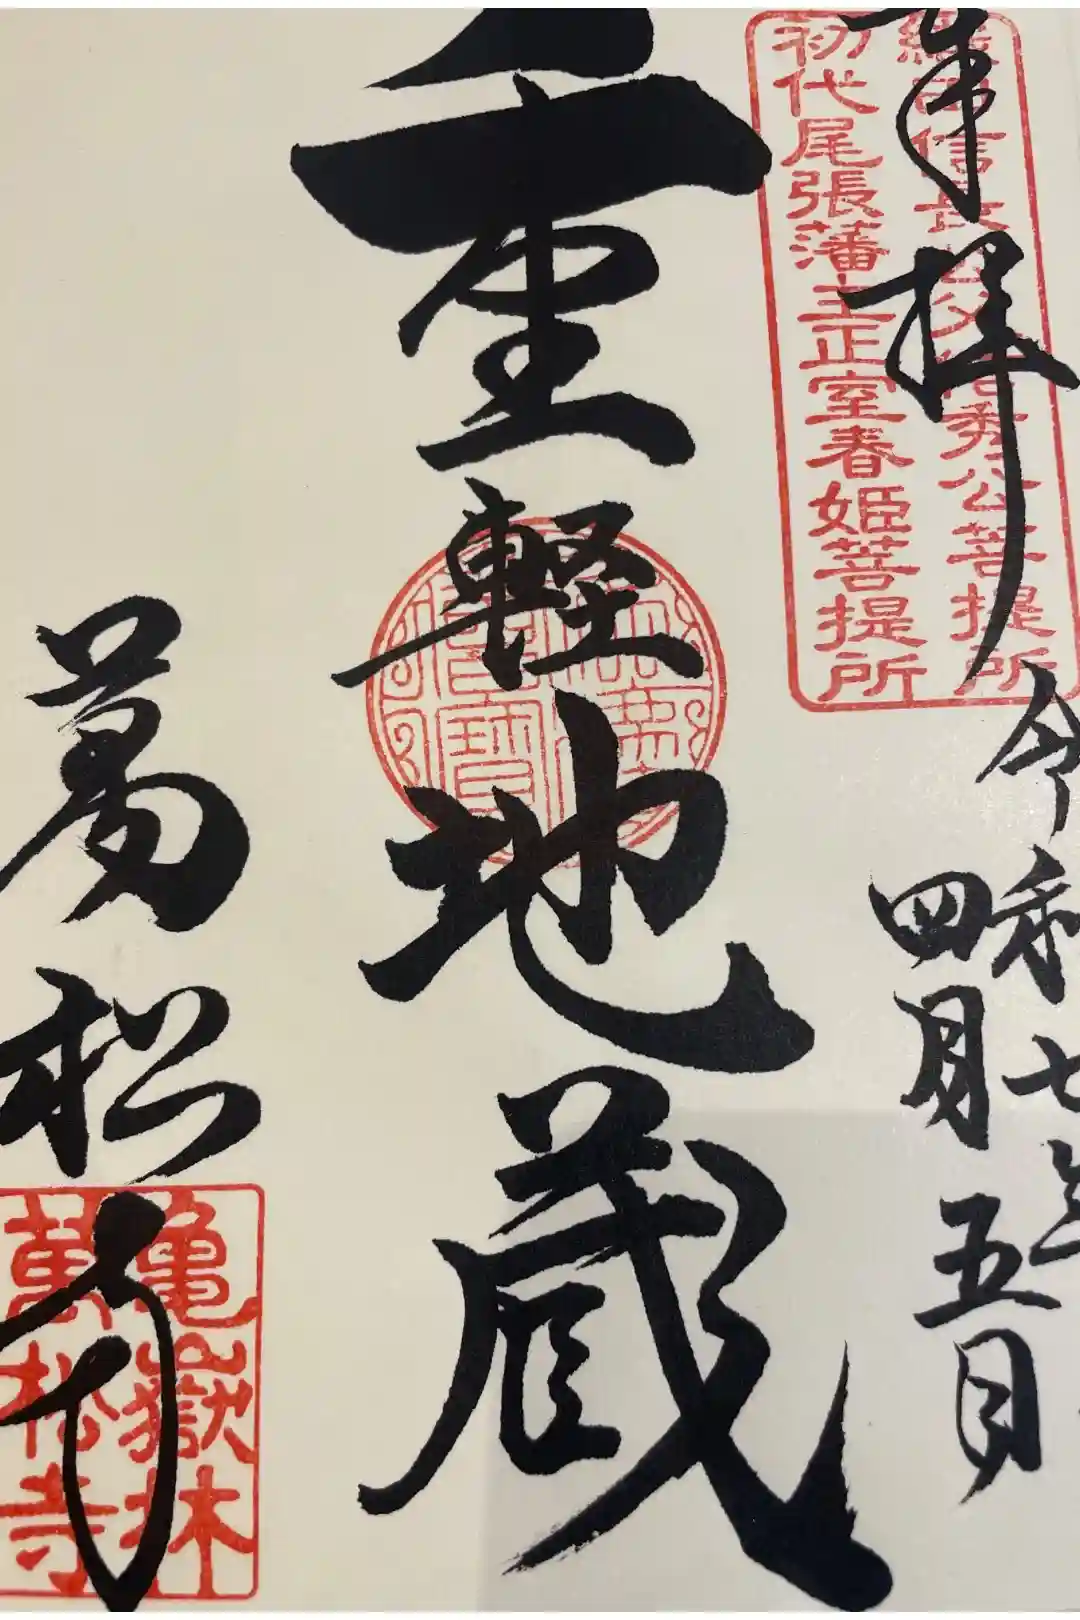 奉拝
織田信長公父信秀公菩提所
初代尾張藩主正室春姫菩提所
令和七年
四月五日
重軽地蔵
萬松寺
亀嶽林
萬松寺